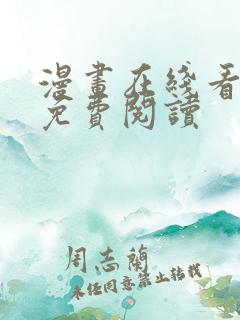 漫畫在綫看
免費閱讀
周志蘭
未经同意禁止转载